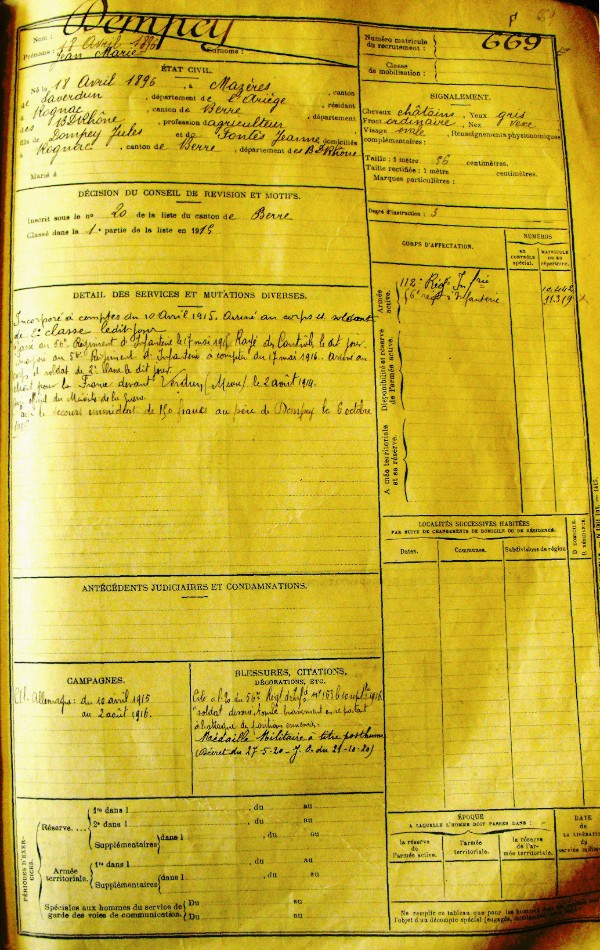 Nom : Dempey
Prénoms : Jean Marie Surnoms :
18 Avril 1896
Numéro matricule
du recrutement :
669
Classe
de mobilisation :
ÉTAT CIVIL.
Né le 18 Avril 1896, à Mazères, canton
de Saverdun, département de l'Ariège, résidant
à Rognac, canton de Berre, département
des B. du Rhône, profession d'agriculteur
fils de Dompey Jules et de Fontès Jeanne domiciliés
à Rognac, canton de Berre, département des B. du Rhône
Marié à
SIGNALEMENT.
Cheveux châtains, Yeux gris
Front ordinaire, Nez
Visage ovale, Renseignements physionomiques
complémentaires :
Taille : 1 mètre 56 centimètres.
Taille rectifiée : 1 mètre centimètres.
Marques particulières :
Degré d'instruction : 3
DÉCISION DU CONSEIL DE REVISION ET MOTIFS.
Inscrit sous le n° 20 de la liste du canton de Berre
Classé dans la 1e partie de la liste en 1915
CORPS D'AFFECTATION.
NUMÉROS
AU CONTRÔLE spécial.
MATRICULE OU AU répertoire.
Armée active.
112e Régt Infrie
56e régt d'Infanterie
11.319
Disponibilité et réserve de l'armée active.
Armée territoriale et sa réserve.
DETAIL DES SERVICES ET MUTATIONS DIVERSES.
Incorporé à compter du 10 Avril 1915. Arrivé au corps et soldat
de 2e classe ledit jour.
Passé au 56e Régiment d'Infanterie le 17 mai 1916. Rayé des Contrôles le dit jour.
au 56e Régiment d'Infanterie à compter du 17 mai 1916. Arrivé au
corps et soldat de 2e classe le dit jour.
pour la France devant Verdun (Meuse) le 2 août 1916.
du Ministre de la Guerre.
secours immédiat de 150 francs au père de Dompey le 6 octobre
LOCALITÉS SUCCESSIVES HABITÉES
PAR SUITE DE CHANGEMENTS DE DOMICILE OU DE RÉSIDENCE.
Dates.
Communes.
Subdivisions de région
D. DOMICILE.
R. RÉSIDENCE.
ANTÉCÉDENTS JUDICIAIRES ET CONDAMNATIONS.
CAMPAGNES.
Allemagne : du 10 avril 1915
au 2 août 1916.
BLESSURES, CITATIONS,
DÉCORATIONS, ETC.
Cité à l'O. du 56e Régt d'Infie n° 163 10 septbre 1916
"soldat dévoué, tombé bravement en repartant
à l'attaque de positions ennemies.
Médaille Militaire à titre posthume
(Décret du 27-5-20 - J.O. du 21-10-20)
PÉRIODES D'EXERCICES.
Réserve....
1re dans l , du au
2e dans l , du au
Supplémentaires dans l , du au
Armée territoriale.
1re dans l , du au
Supplémentaires dans l , du au
Spéciales aux hommes du service de
garde des voies de communication.
Du au
Du au
ÉPOQUE
A LAQUELLE L'HOMME DOIT PASSER DANS :
la réserve de l'armée active.
l'armée territoriale.
la réserve de l'armée territoriale.
DATE
de LA LIBÉRATION
du service militaire
Ne remplir ce tableau que pour les hommes
l'objet d'un décompte spécial (engagés,